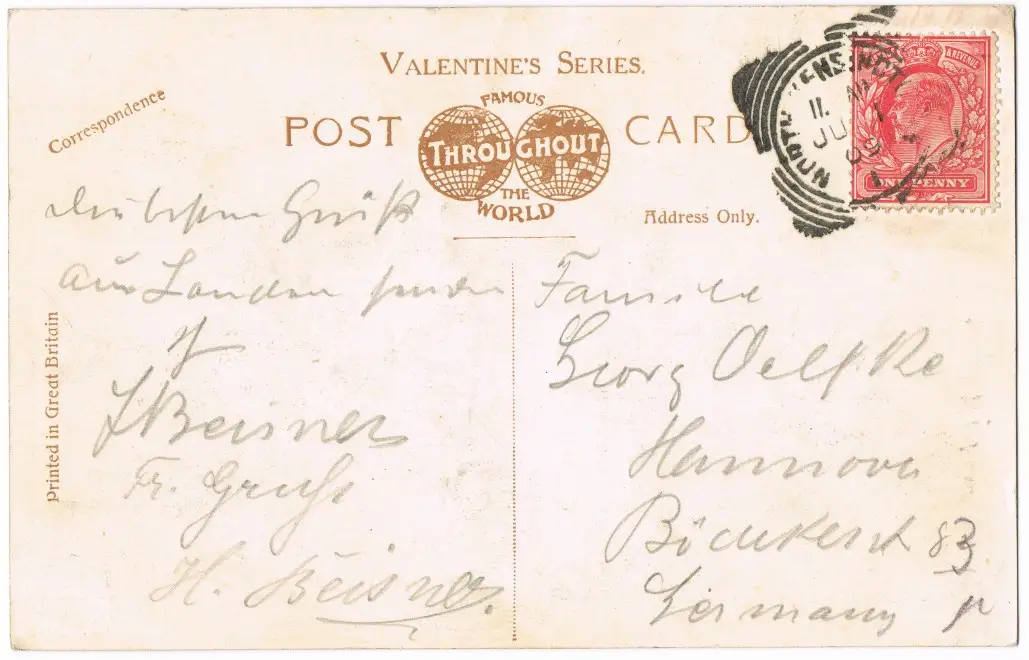 VALENTINE'S SERIES.
Correspondence
POST CARD
FAMOUS
THROUGHOUT
THE
WORLD
Address Only.
NORTH KENSINGT
11
JU 1
09
& REVENUE
ONE PENNY
Printed in Great Britain
Die besten Grüße
aus London senden
Beisner
Fr. Gruß
H. Beisner.
Familie
Georg Oelfke
Hannover
Bödekerst 83
Germany